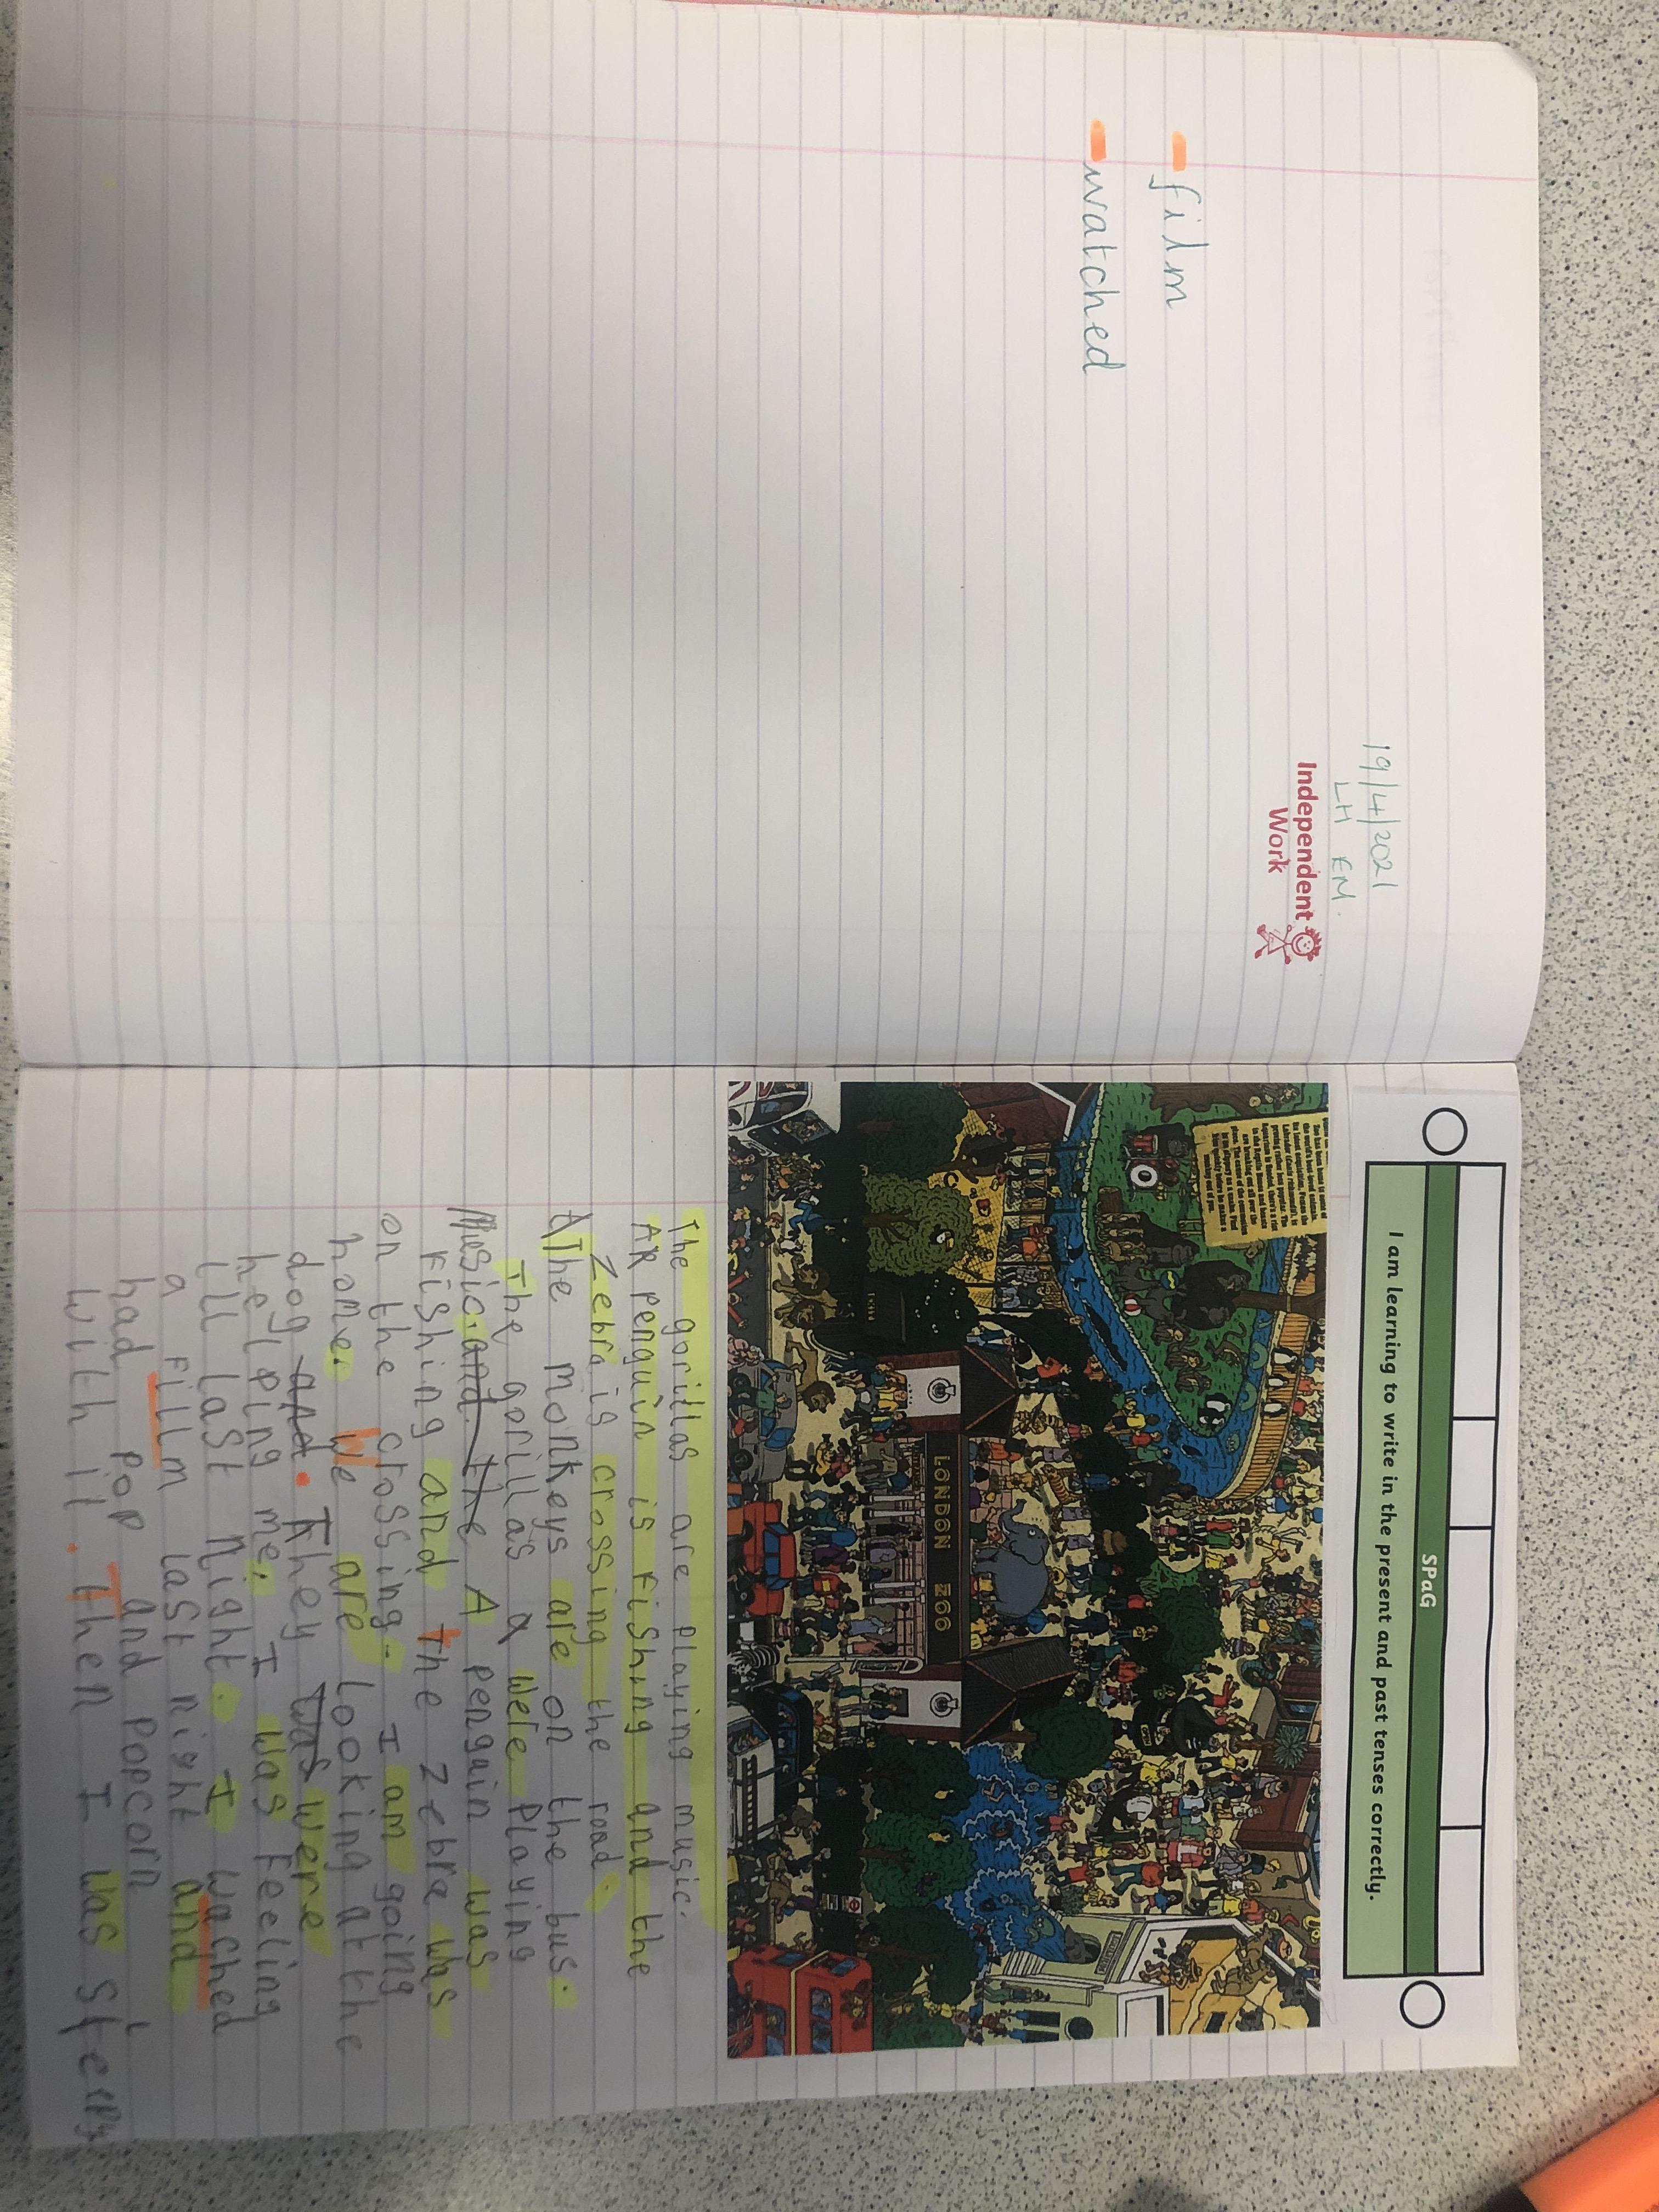 19/4/2021
LH EM.
Independent
Work
film
watched
SPaG
I am learning to write in the present and past tenses correctly.
LONDON ZOO
The gorillas are playing music.
AR penguin is fishing and the
zebra is crossing the road.
The monkeys are on the bus.
The gorillas a were playing
Music. and the A penguin was
fishing and the zebra was
on the crossing. I am going
home. we are looking at the
dog and. They was were
helping me. I was feeling
ill last night. I wached
a fillm last night and
had pop and popcorn
with it. Then I was